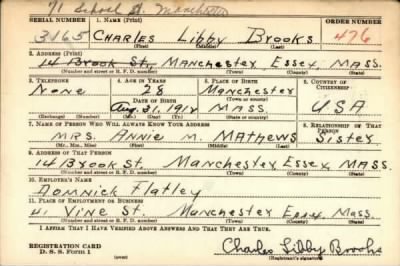 71 School St. Manchester
SERIAL NUMBER 1. NAME (Print) ORDER NUMBER
3165 CHARLES Libby Brooks 476
(First) (Middle) (Last)
2. ADDRESS (Print)
14 Brook St., Manchester Essex, MASS.
(Number and street or R. F. D. number) (Town) (County) (State)
3. TELEPHONE 4. AGE IN YEARS 5. PLACE OF BIRTH 6. COUNTRY OF CITIZENSHIP
None 28 Manchester
DATE OF BIRTH (Town or county)
Aug. 31, 1912 MASS. USA
(Exchange) (Number) (Mo.) (Day) (Yr.) (State or country)
7. NAME OF PERSON WHO WILL ALWAYS KNOW YOUR ADDRESS 8. RELATIONSHIP OF THAT PERSON
MRS. ANNIE M. MATHEWS Sister
(Mr., Mrs., Miss) (First) (Middle) (Last)
9. ADDRESS OF THAT PERSON
14 BROOK St. Manchester, Essex, MASS.
(Number and street or R. F. D. number) (Town) (County) (State)
10. EMPLOYER'S NAME
Domnick Flatley
11. PLACE OF EMPLOYMENT OR BUSINESS
41 Vine St. Manchester Essex, Mass.
(Number and street or R. F. D. number) (Town) (County) (State)
I AFFIRM THAT I HAVE VERIFIED ABOVE ANSWERS AND THAT THEY ARE TRUE.
REGISTRATION CARD
D. S. S. Form 1
Charles Libby Brooks
(Registrant's signature)